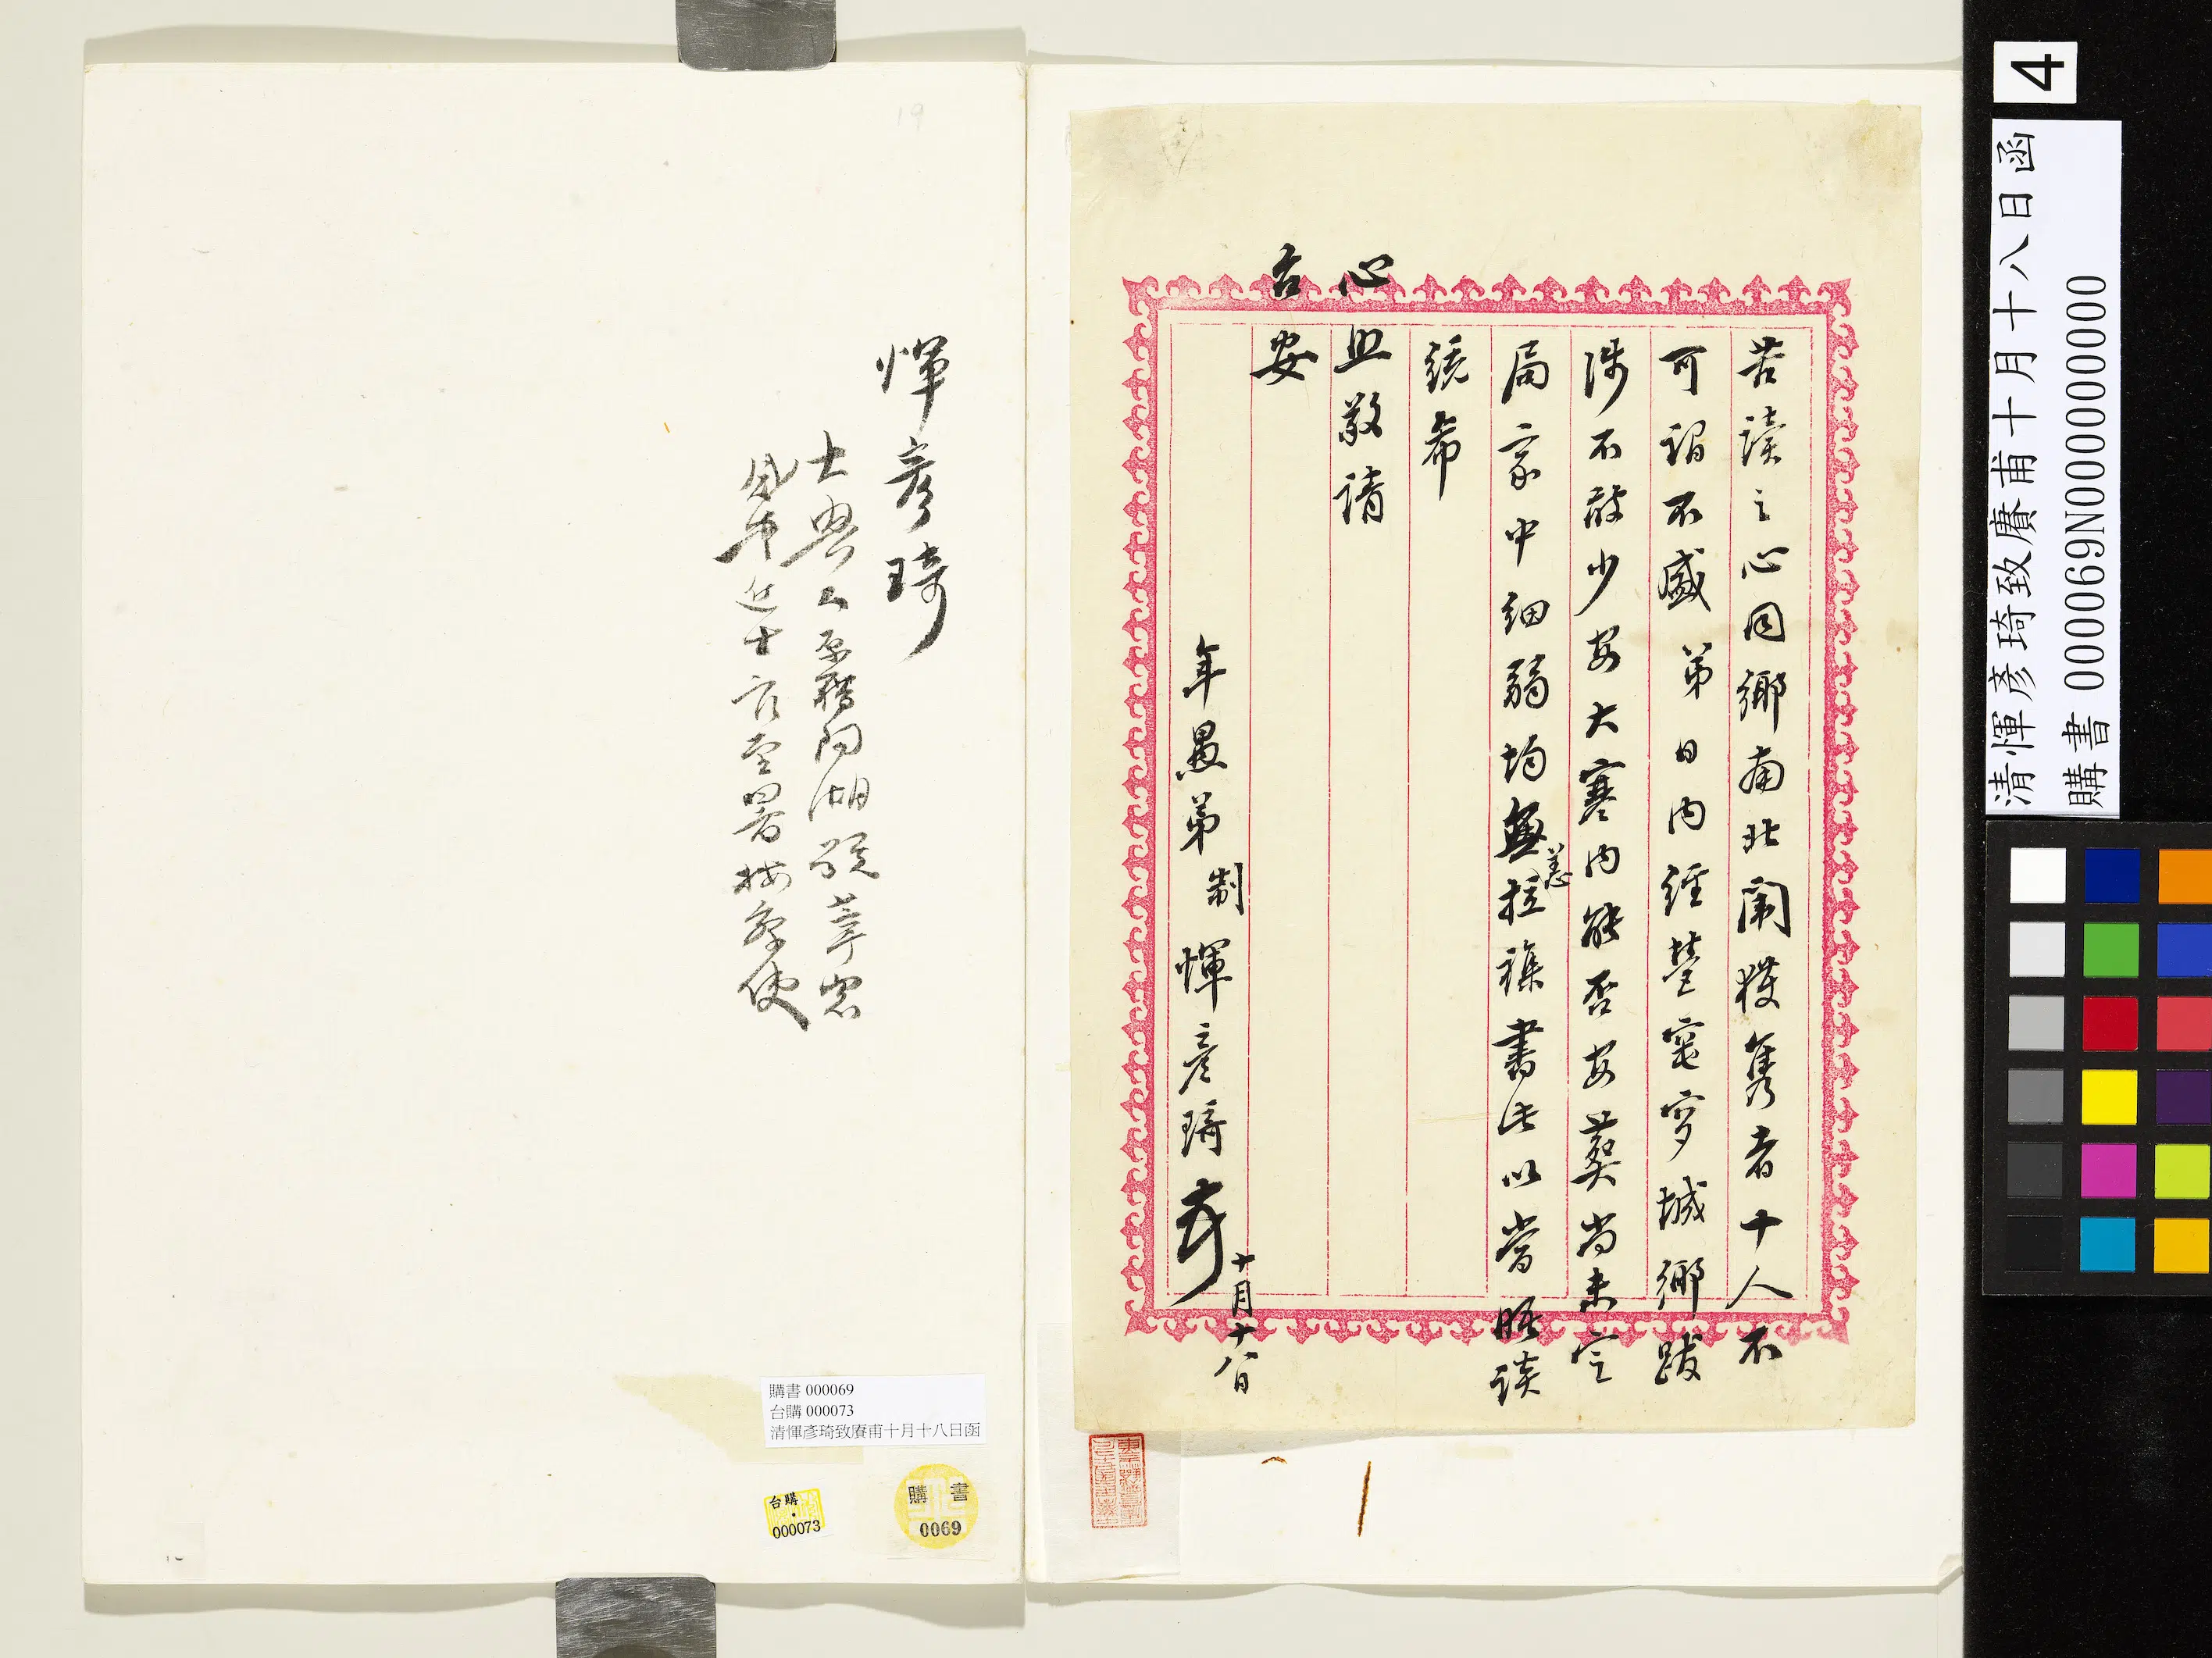 苦讀之心同鄉南北闈獲雋者十人不
可謂不盛弟日內經營窀穸城鄉跋
涉不敢少安大寒內能否安葬尚未定
局家中細弱均無恙拉雜書此以當晤談
統希
心照敬請
台安
年愚弟制惲彥琦
十月十八日
惲彥琦
大興人原籍陽湖號莘農
咸豐進士官至署按察使
購書 000069
台購 000073
清惲彥琦致賡甫十月十八日函
台購
000073
購書
0069
19
4
清惲彥琦致賡甫十月十八日函
購書 000069N000000000